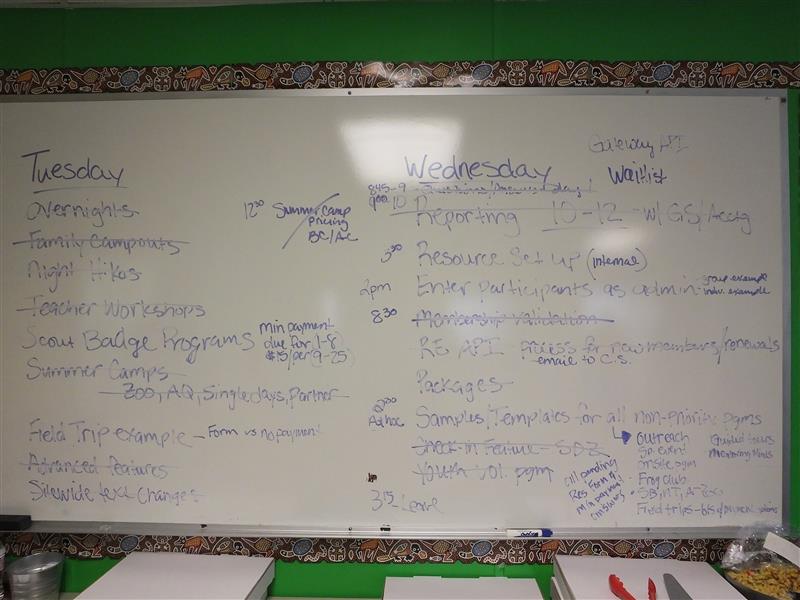 Tuesday
Overnights
Family Campouts
Night Hikes
Teacher Workshops
Scout Badge Programs
min payment
due for 1-8
$15/per (9-25)
Summer Camps
Zoo, AQ, Single days, Partner
Field Trip example - Form vs no payment
Advanced Features
Sitewide text changes
12:30 Summer Camp
Pricing
BC/AC
Gateway API
Waitlist
Wednesday
845-9
9:00 10 Reporting 10-12 w/ GS/Acctg
Resource Set up (internal)
2pm Enter participants as admin - group example
indiv. example
8:30 Membership Validation
RE API process for new members/renewals
email to C.S.
Packages
Ad hoc Samples/Templates for all non-priority pgms
Outreach
Sp. event
Onsite pgm
Frog club
Guided tours
Check-in Feature - SDZ
Youth Vol. pgm
all pending
Res. Form &
min payment
3:15 - Leave
Field trips -